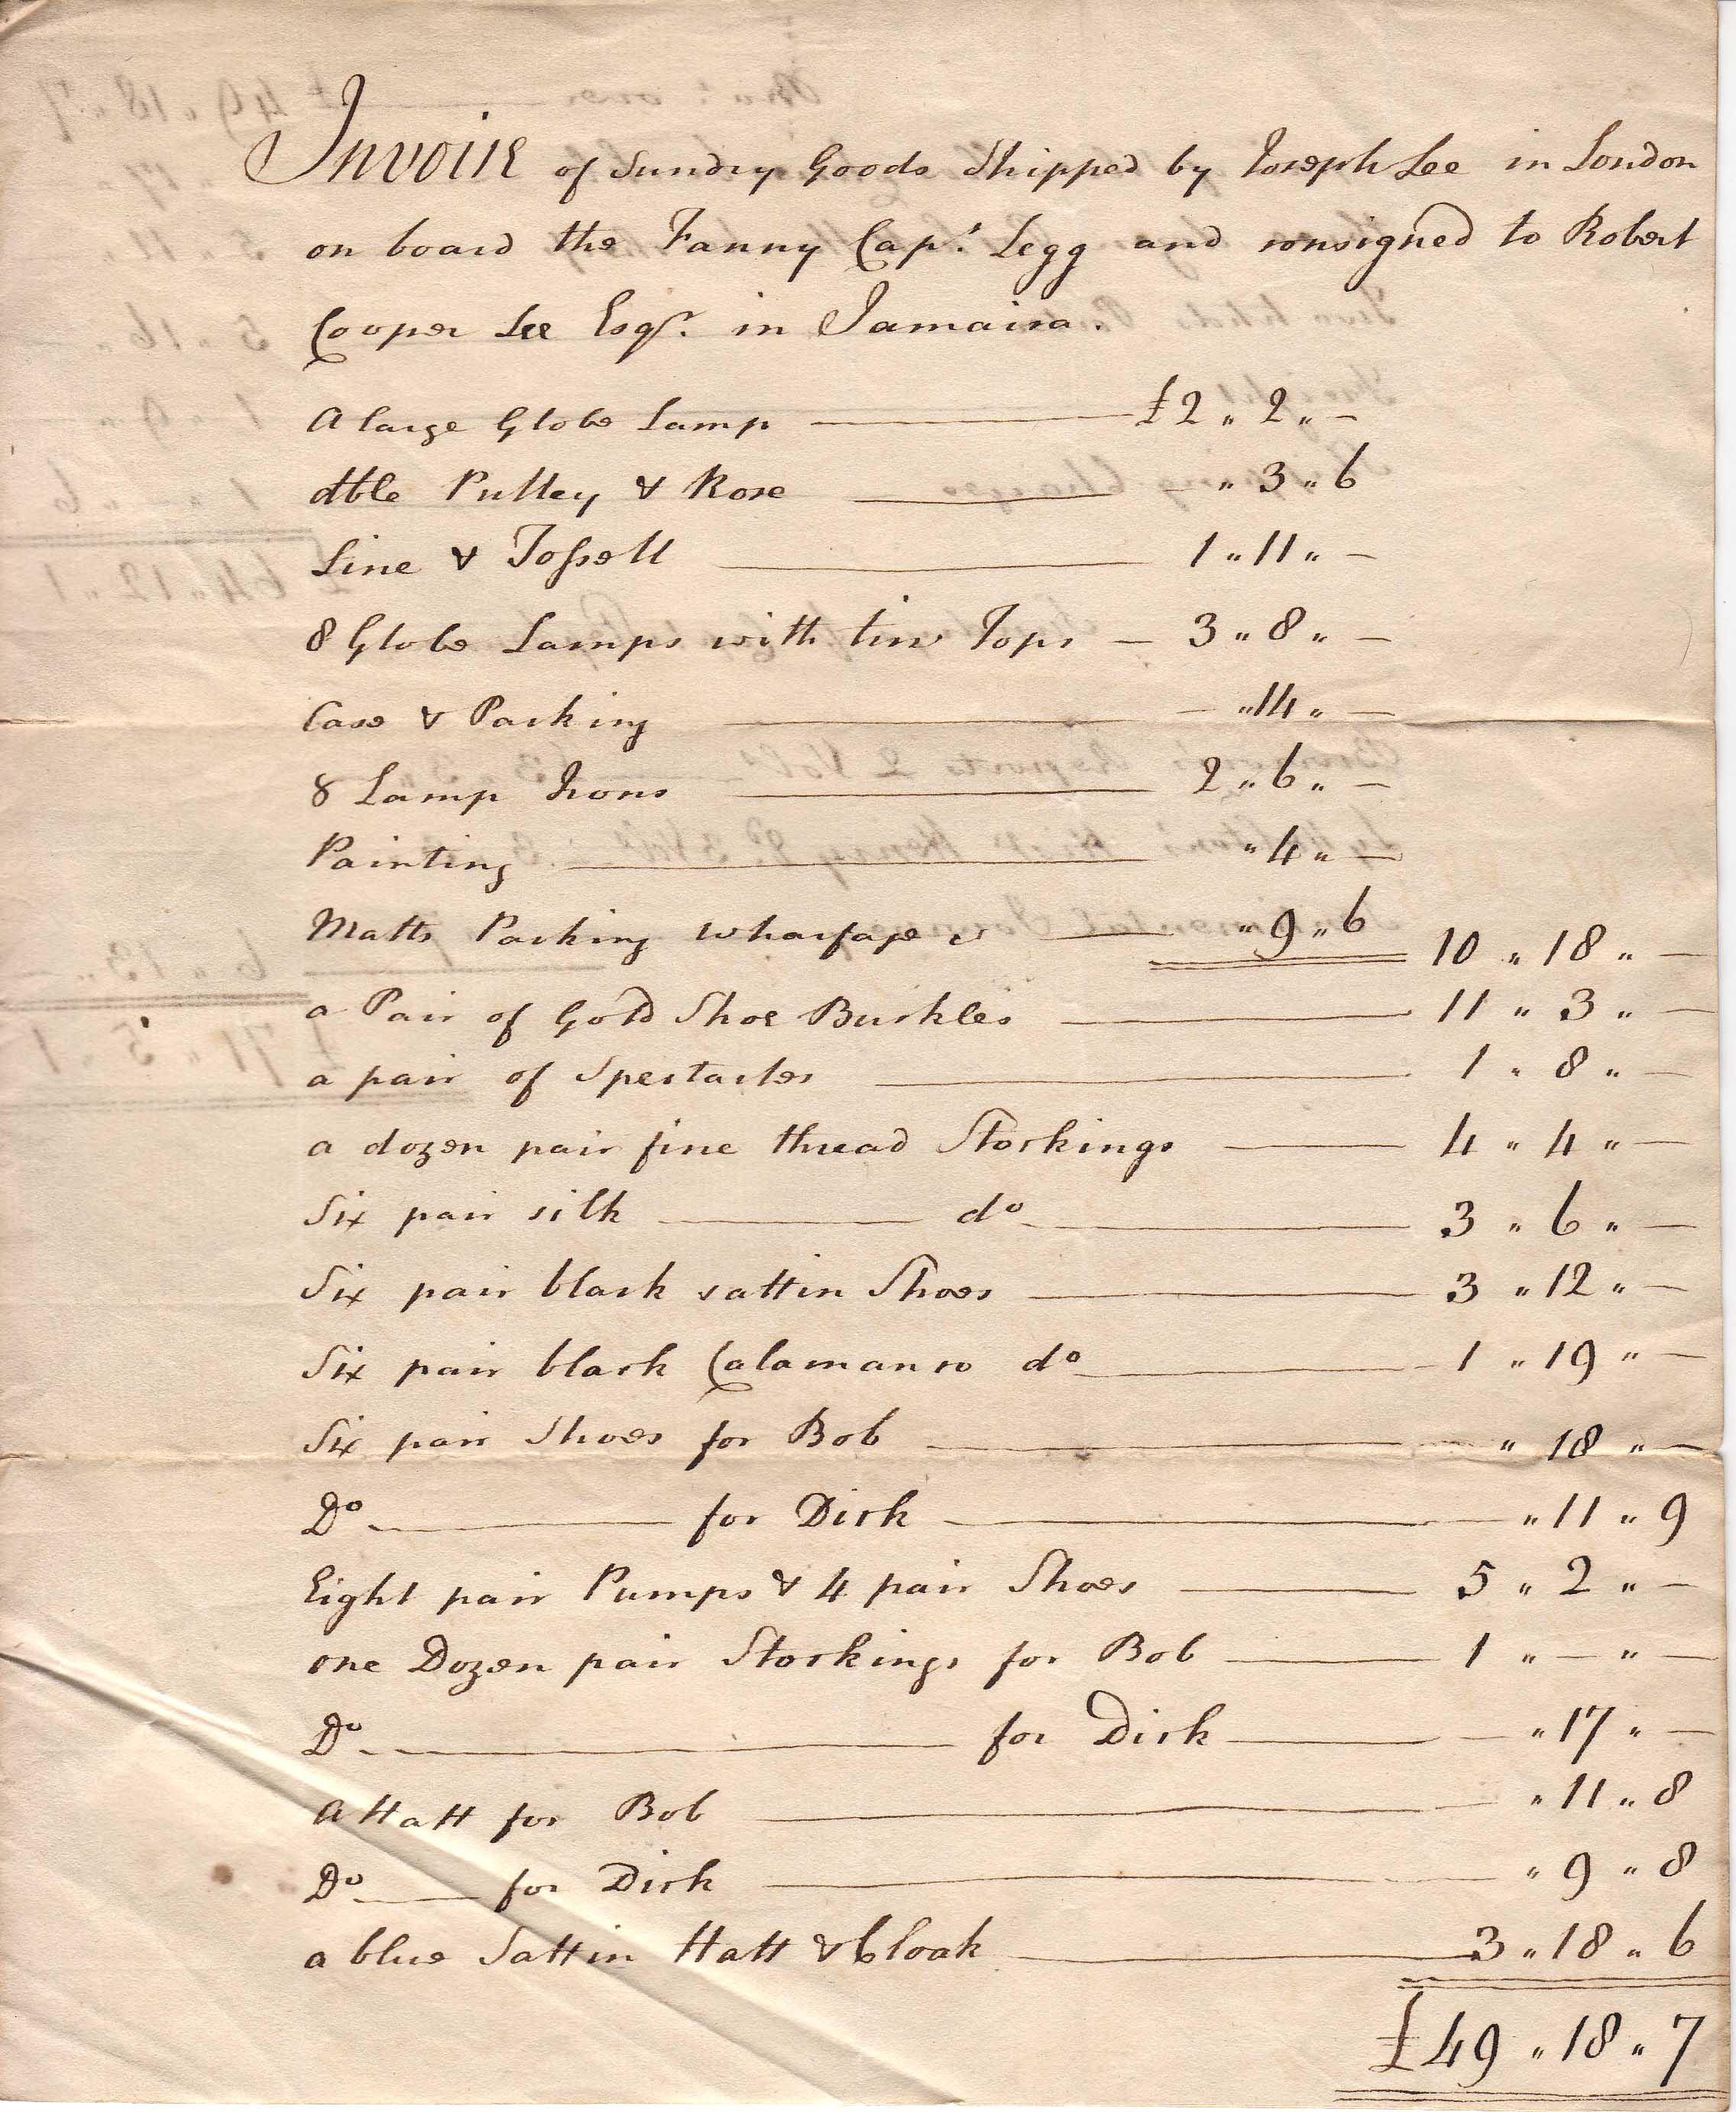 Invoice of Sundry Goods Shipped by Joseph Lee in London
on board the Fanny Capt. Legg and consigned to Robert
Cooper Lee Esqr. in Jamaica.
A large Globe Lamp £2 " 2 " -
dble Pulley & Rose - " 3 " 6
Line & Tossell 1 " 11 " -
8 Globe Lamps with tin Tops - 3 " 8 " -
Case & Packing - " 14 " -
8 Lamp Irons 2 " 6 " -
Painting " 4 " -
Matts Packing wharfage " 9 " 6 10 " 18 " -
a Pair of Gold Shoe Buckles 11 " 3 " -
a pair of Spectacles 1 " 8 " -
a dozen pair fine thread Stockings 4 " 4 " -
Six pair silk do 3 " 6 " -
Six pair black sattin Shoes 3 " 12 " -
Six pair black Calamanco do 1 " 19 " -
Six pair Shoes for Bob - " 18 " -
Do for Dick - " 11 " 9
Eight pair Pumps & 4 pair Shoes 5 " 2 " -
one Dozen pair Stockings for Bob 1 " - " -
Do for Dick - " 17 " -
A Hatt for Bob " 11 " 8
Do for Dick " 9 " 8
a blue Sattin Hatt & Cloak 3 " 18 " 6
£49 " 18 " 7